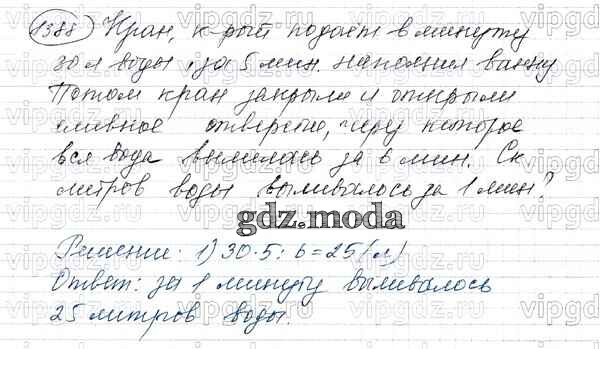 1388 Кран, к-рый подаёт в минуту
30 л воды, за 5 мин. наполнил ванну
Потом кран закрыли и открыли
сливное отверстие, через которое
вся вода вылилась за 6 мин. Ск
литров воды выливалось за 1 мин?
gdz.moda
Решение: 1) 30·5:6=25(л)
Ответ: за 1 минуту выливалось
25 литров воды.